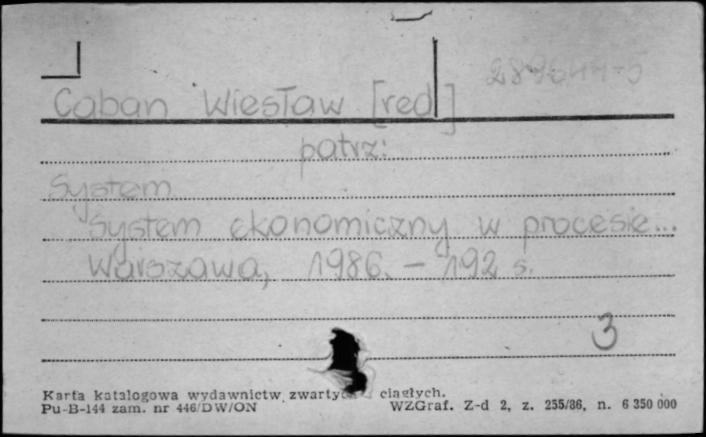 289644-5
Caban Wiesław [red]
patrz:
System
System ekonomiczny w procesie...
Warszawa, 1986. - 192 s.
3
Karta katalogowa wydawnictw zwartych ciągłych.
Pu-B-144 zam. nr 446/DW/ON WZGraf. Z-d 2, z. 255/86, n. 6 350 000